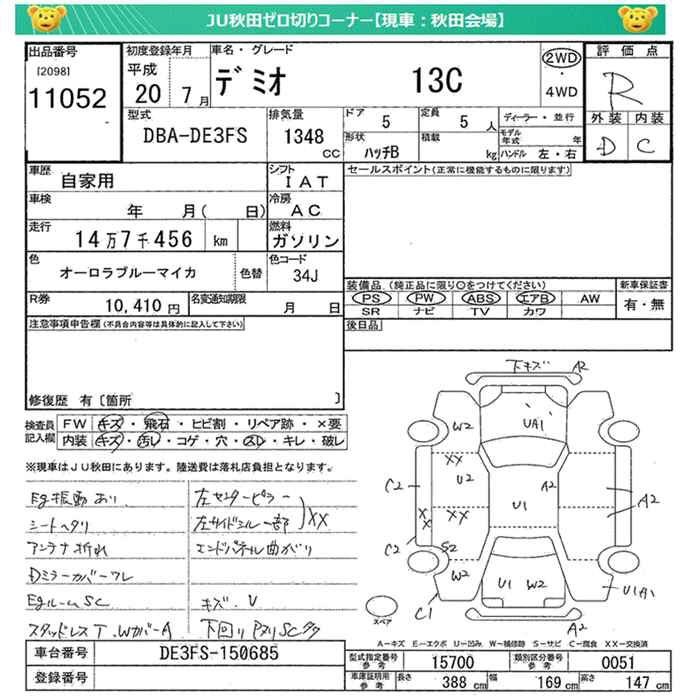 JU秋田ゼロ切りコーナー【現車：秋田会場】
出品番号
[2098]
11052
初度登録年月
平成
20 7月
車名・グレード
デミオ 13C
2WD
・
4WD
評価点
R
外装 内装
D C
型式
DBA-DE3FS
排気量
1348
CC
ドア 5
定員 5 人
形状
ハッチB
積載
kg
ディーラー・並行
モデル年式 年
ハンドル 左・右
車歴
自家用
シフト
IAT
車検
年 月( 日)
冷房
AC
走行
14万7千456 km
燃料
ガソリン
色
オーロラブルーマイカ
色替
色コード
34J
R券
10,410円
名変通知期限
月 日
セールスポイント(正常に機能するものに限ります)
装備品(純正品に限り○をつけてください)
PS PW ABS エアB AW
SR ナビ TV カワ
新車保証書
有・無
後日品
注意事項申告欄(不具合内容等は具体的に記入して下さい)
修復歴 有[箇所 ]
検査員記入欄
FW キズ・飛石・ヒビ割・リペア跡・×要
内装 キズ・汚レ・コゲ・穴・スレ・キレ・破レ
※現車はJU秋田にあります。陸送費は落札店負担となります。
Eg振動あり
シートヘタリ
アンテナ折れ
Dミラーカバーワレ
EgルームSC
スタッドレスT.WカバーA
左センターピラー
左サイドシル一部 XX
エンドパネル曲がり
キズ.U
下回り
下キズ A2
W2
UA1
XX
U2
C2
A2
U1
A2
XX
XX
C2
S2
W2
U1 W2
U1A1
C1
A2
スペア
A－キズ E－エクボ U－凹み W－補修跡 S－サビ C－腐食 XX－交換済
車台番号 DE3FS-150685
登録番号
型式指定番号参考 15700
類別区分番号参考 0051
車庫証明用参考
長さ 388cm
幅 169cm
高さ 147cm